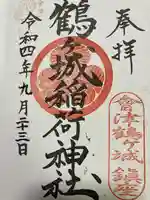 奉拝
會津鶴ヶ城鎮座
鶴ヶ城稲荷神社
令和四年九月二十三日